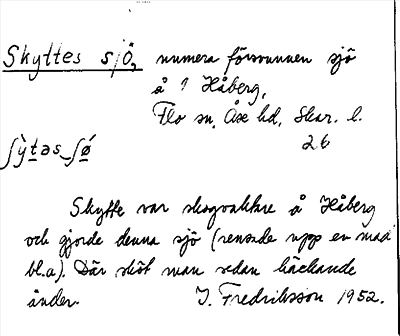 Skyttes sjö, numera försvunnen sjö
å 1 Håberg,
Flo sn, Åse hd, Skar. l.
26
ʃỳtəs_ʃǿ
Skytte var skogvaktare å Håberg
och gjorde denna sjö (rensade upp en mad
bl.a). Där sköt man sedan häckande
änder. J. Fredriksson 1952.